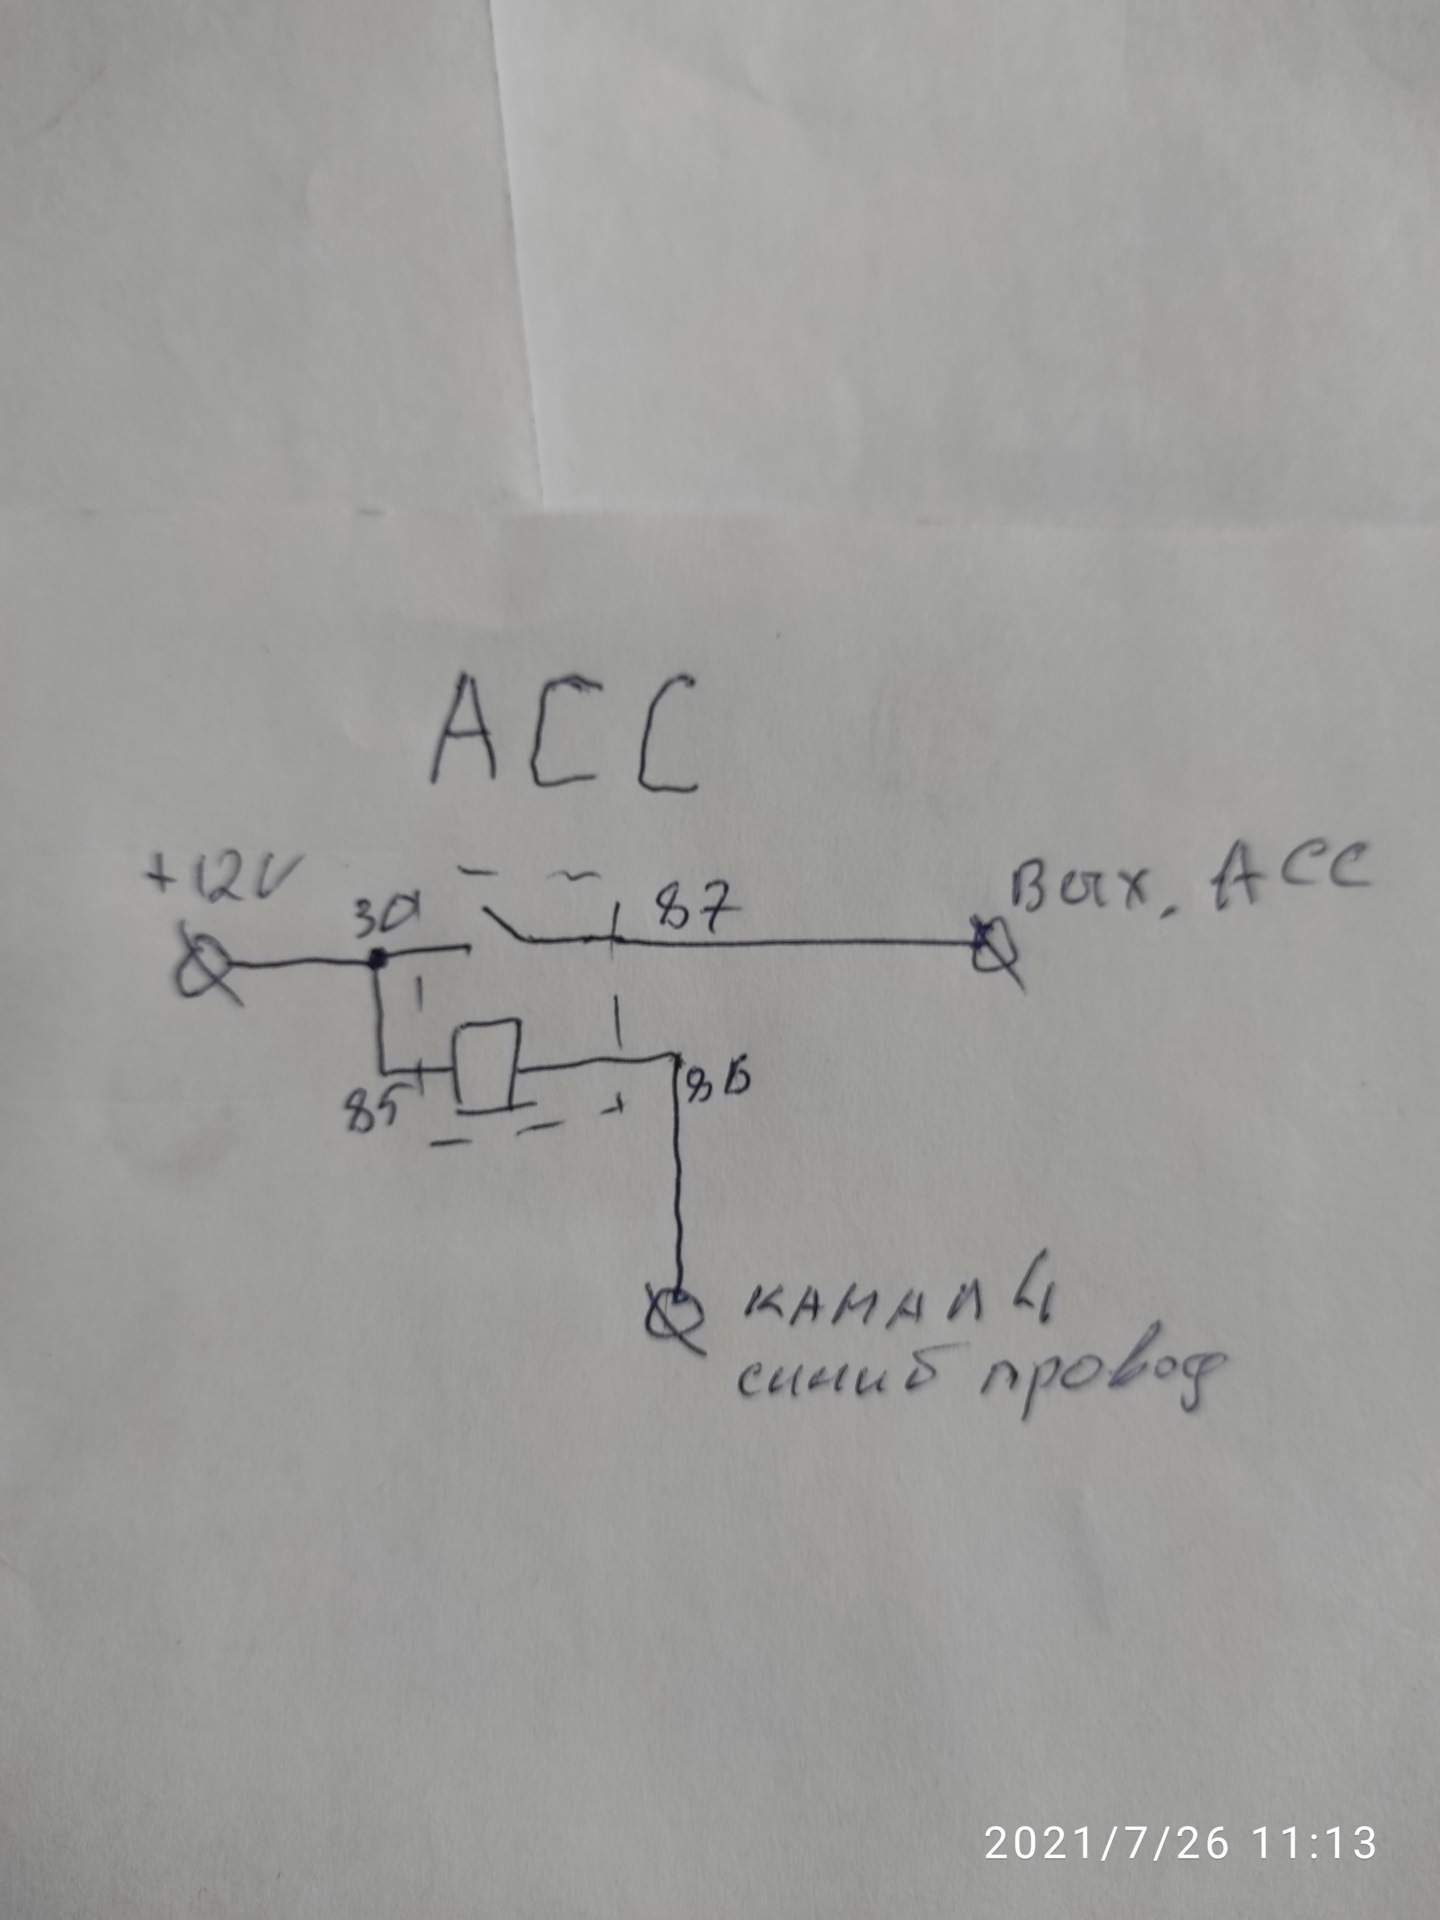 ACC
+12V
30
87
Вых. ACC
85
86
канал 4
синий провод
2021/7/26 11:13